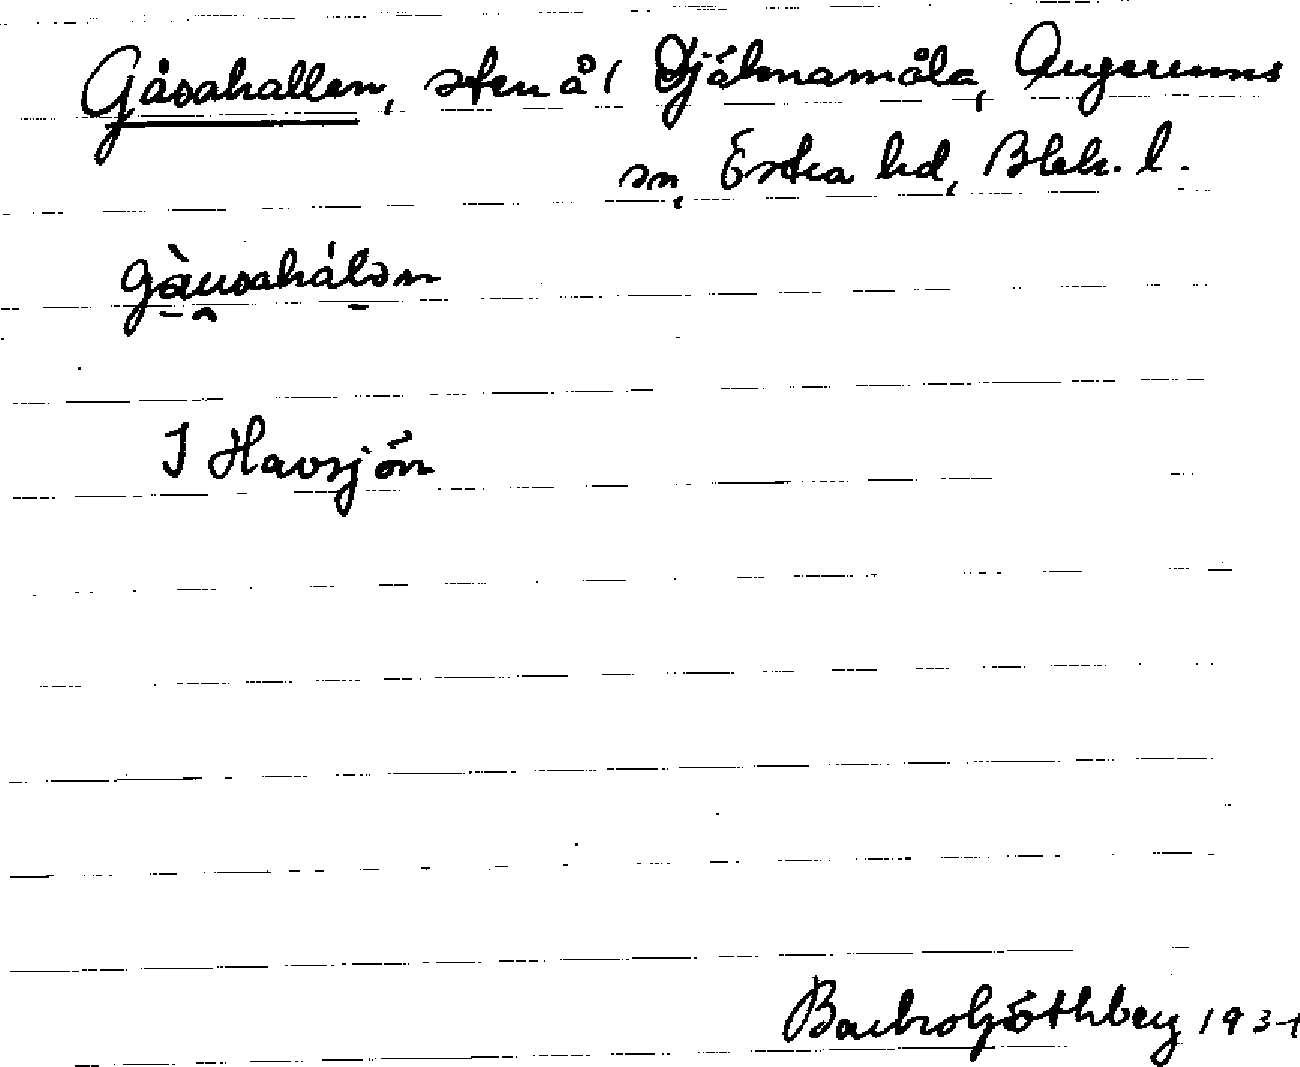 Gåsahallen, sten å Hjälmamåla, Augerums
sn, Östra hd, Blek. l.
gàusahálǝn
I Havsjön
Göthberg 193